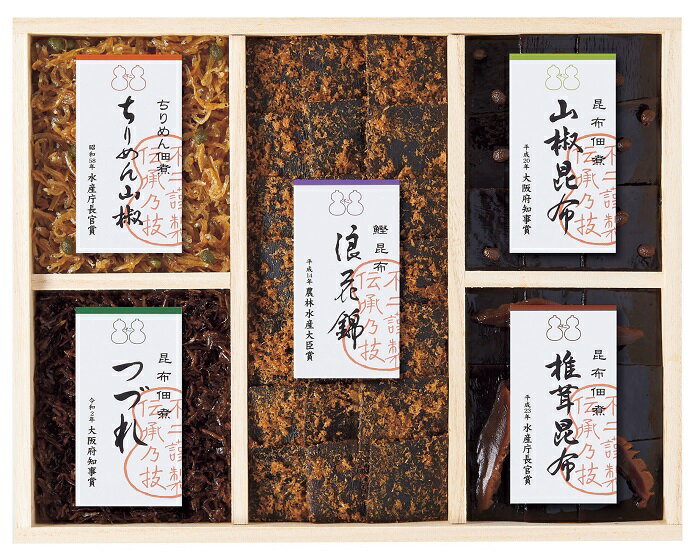 ちりめん佃煮
ちりめん山椒
昭和58年 水産庁長官賞
不二謹製
伝承乃技
鰹昆布
浪花錦
平成14年 農林水産大臣賞
不二謹製
伝承乃技
昆布佃煮
山椒昆布
平成20年 大阪府知事賞
不二謹製
伝承乃技
昆布佃煮
つづれ
令和2年 大阪府知事賞
不二謹製
伝承乃技
昆布佃煮
椎茸昆布
平成23年 水産庁長官賞
不二謹製
伝承乃技